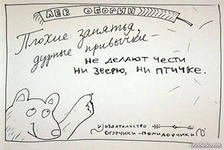 ЛЕВ ОБОРИН
Плохие занятья,
дурные привычки –
не делают чести
ни зверю, ни птичке.
издательство
огурчики-помидорчики